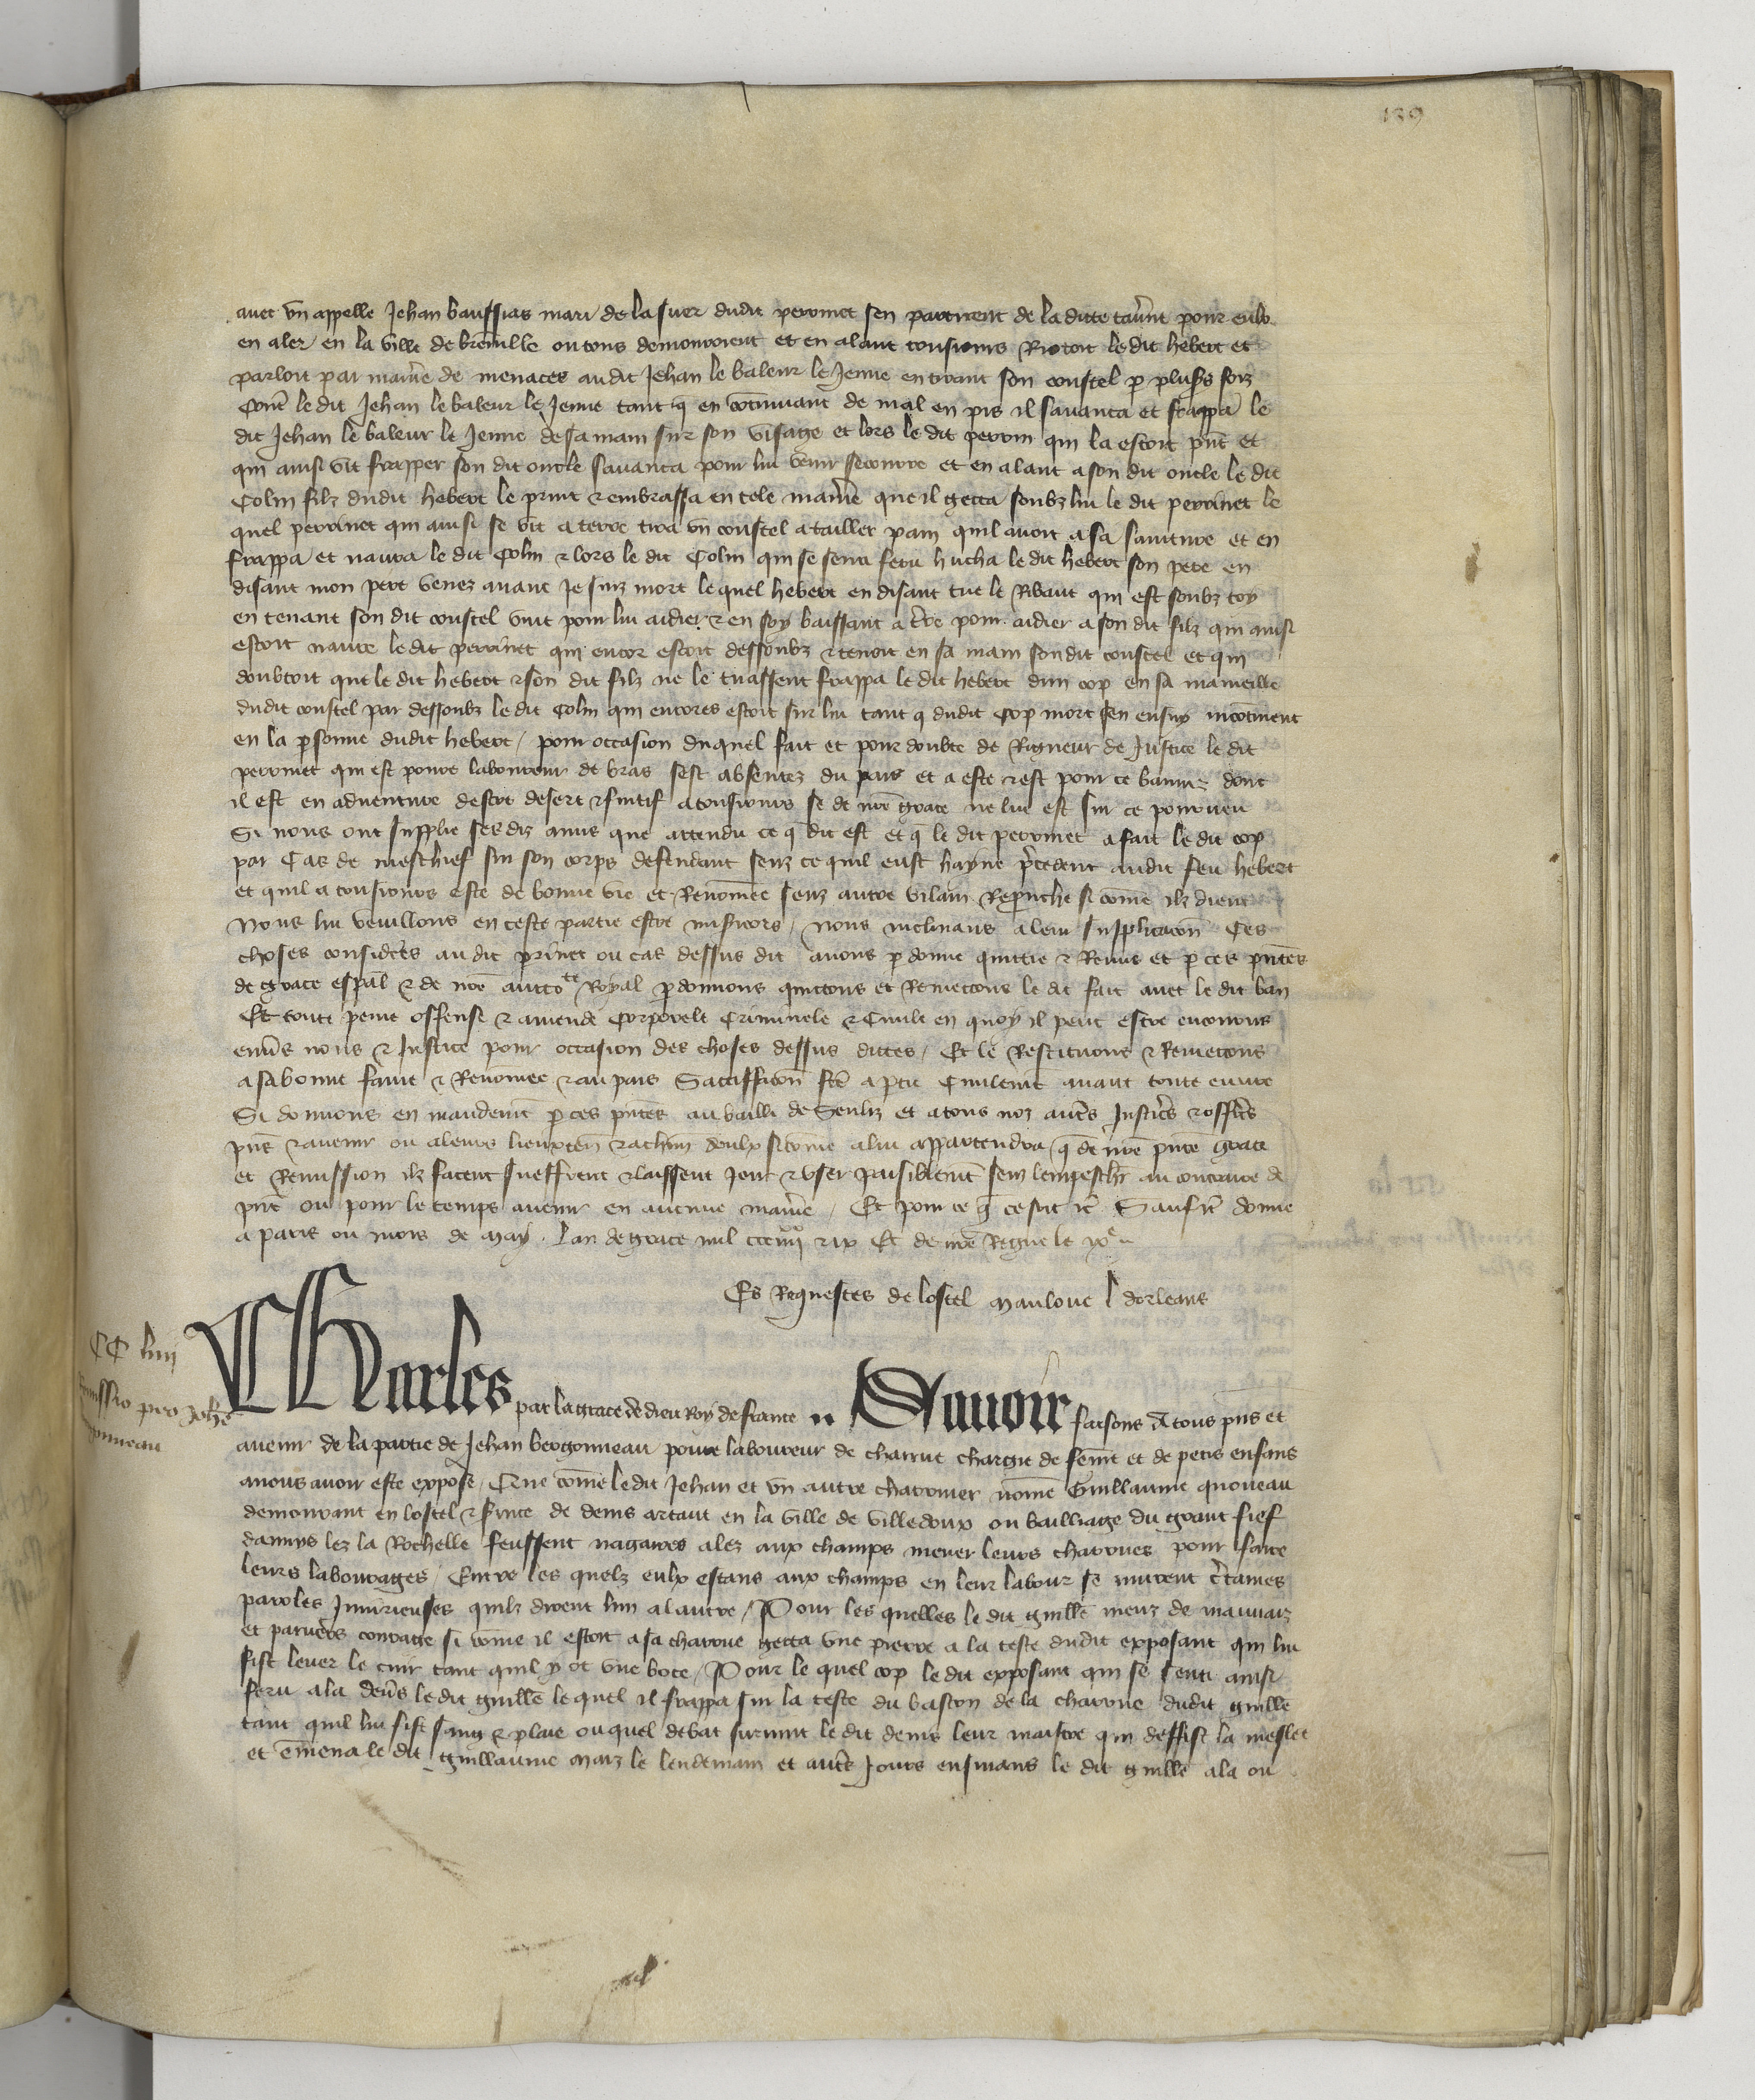 139
avec un appelle Jehan baussias mari de la suer dudit perrinet sen partirent de la ditte tav̾ne pour eulx
en aler en la ville de bremille ou tous demouroient et en alant tousiours Riotoit le dit hebert et
parloit par maniē de menaces audit Jehan le baleur le Jeune en tirant son coustel p plus̄s foiz
Cont̄ le dit Jehan le baleur le Jeune tant q̄ en cōtinuant de mal en pis il savança et frappa le
dit Jehan le baleur le Jeune de sa main sur son visage et lors le dit perrin qui la estoit pn̄t et
qui ainsi vit frapper son dit oncle savança pour lui venir secourre et en alant a son dit oncle le dit
Colin filz dudit hebert le print & embrassa en tele maniē que il getta soubz lui le dit perrinet le
quel perrinet qui ainsi se vit a terre tira un coustel a taillier pain quil avoit a sa sainture et en
frappa et navra le dit Colin & lors le dit Colin qui se senti feru hucha le dit hebert son pere en
disant mon pere venez avant Je suiz mort le quel hebert en disant tue le Ribaut qui est soubz toy
en tenant son dit coustel vint pour lui aidier & en soy baissant a t̄re pour aidier a son dit filz qui ainsi
estoit navre le dit perrinet qui encor estoit dessoubz & tenoit en sa main son dit coustel et qui
doubtoit que le dit hebert & son dit filz ne le tuassent frappa le dit hebert dun cop en sa mameille
dudit coustel par dessoubz le dit Colin qui encores estoit sur lui tant q dudit Cop mort sen ensuy incōtinent
en la p̄sonne dudit hebert / pour occasion duquel fait et pour doubte de Rigueur de Justice le dit
perrinet qui est povre laboureur de bras sest absentez du pais et a este & est pour ce banniz dont
il est en adventure destre desert & fuitif a tousiours se de nr̄e grace ne lui est sur ce pourveu
Si nous ont supplie ses diz amis que attendu ce q̄ dit est et q̄ le dit perrinet a fait le dit cop
par Cas de meschief sur son corps deffendant senz ce quil eust hayne p̄cedent audit feu hebert
et quil a tousiours este de bonne vie et Renōmee senz autre vilain Reprouche si cōme ilz dient
Nous lui veuillons en ceste partie estre mis̄icors / Nous inclinans a leur supplicacōn Ces
choses considēes au dit p̄rinet ou cas dessus dit avons p̄donne quittie & Remis et p ces pn̄tes
de grace esp̄al & de nr̄e auctote Royal p̄donnons quittons et Remettons le dit fait avec le dit ban
Et toute peine offense & amende Corporele Criminele & Civile en quoy il peut estre encourus
env̄s nous & Justice pour occasion des choses dessus dittes / Et le Restituons & Remettons
a sa bonne fame & Renōmee & au pais Satisfacōn fc̄e a ptie Civilemē̄t avant toute euvre
Si donnons en mandemēt p ces pn̄tes au bailli de Senliz et a tous noz aut̄s Justic̄s & offic̄s
pn̄s & avenir ou a leurs lieuxten̄ & a chūn deulx si cōme a lui appartendra q̄ de nr̄e pn̄te grace
et Remission ilz facent sueffrent & laissent Jouir & user paisiblemēt senz lempeschier au contraire de
pn̄t ou pour le temps avenir en aucune maniē / Et pour ce q̄ ce soit &c̄ Sauf &c̄ donne
a paris ou mois de May . Lan de grace mil ccc iiiixx & ix Et de nr̄e Regne le ixe
Es Requestes de lostel Maulouē l dorleans
CC liiij
Remissio pro Johē
Charles par la grace de dieu Roy de france .. Savoir faisons A tous pn̄s et
avenir de la partie de Jehan bergonneau povre laboureur de charrue chargie de fēme et de petis enfans
a nous avoir este expose / Que cōme le dit Jehan et un autre charruier nōme Guillaume quoveau
demourant en lostel & s̄vice de denis artaut en la ville de villedoux ou bailliage du grant fief
daunys lez la Rochelle feussent nagaires alez aux champs mener leurs charrues pour faire
leurs labourages / Entre les quelz eulx estans aux champs en leur labour se murent c̄taines
paroles Iniurieuses quilz dirent lun a lautre / Pour les quelles le dit guille meuz de mauvaiz
et parvers courage si cōme il estoit a sa charrue getta une pierre a la teste dudit exposant qui lui
fist lever le cuir tant quil y ot une boce / Pour le quel cop le dit exposant qui se senti ainsi
feru ala dev̄s le dit guillē le quel il frappa sur la teste du baston de la charrue dudit guillē
tant quil lui fist sang & plaie ou quel debat survint le dit denis leur maistre qui deffist la meslee
et ēmena le dit guillaume Maiz le lendemain et aut̄s Jours ensuivans le dit guillē ala ou